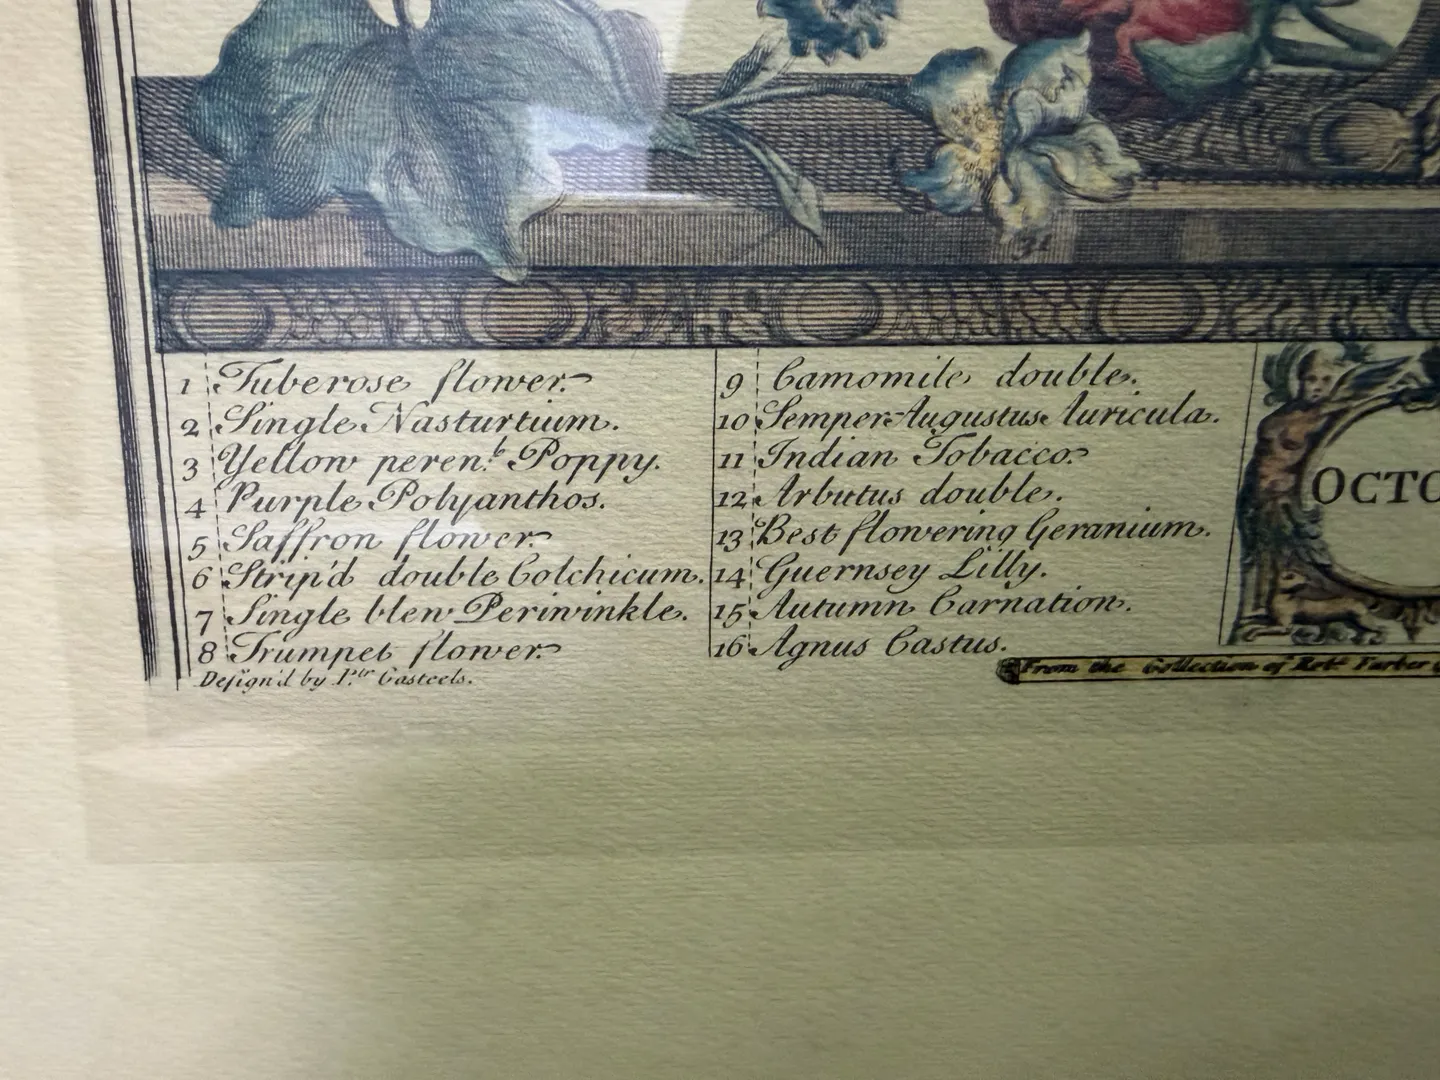 31
1 Tuberose flower.
2 Single Nasturtium.
3 Yellow peren.l Poppy.
4 Purple Polyanthos.
5 Saffron flower.
6 Strip'd double Colchicum.
7 Single blew Periwinkle.
8 Trumpet flower.
Design'd by P.tr Casteels.
9 Camomile double.
10 Semper Augustus Auricula.
11 Indian Tobacco.
12 Arbutus double.
13 Best flowering Geranium.
14 Guernsey Lilly.
15 Autumn Carnation.
16 Agnus Castus.
OCTO
From the Collection of Robt. Furber